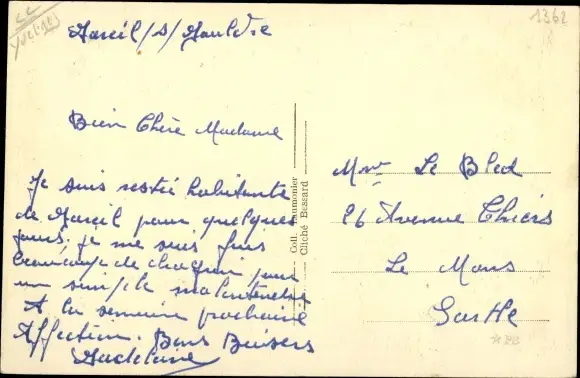 Mareil/s/Mauldre
Bien Chère Madame
Je suis restée habitante
de Mareil pour quelques
jours, je me suis fais
beaucoup de chagrin pour
un simple malentendu
A la semaine prochaine
Affection. Bons Baisers
Madeleine
Coll. Chaumonier
Cliché Bessard
Mme Le Bled
26 Avenue Thiers
Le Mans
Sarthe
1362